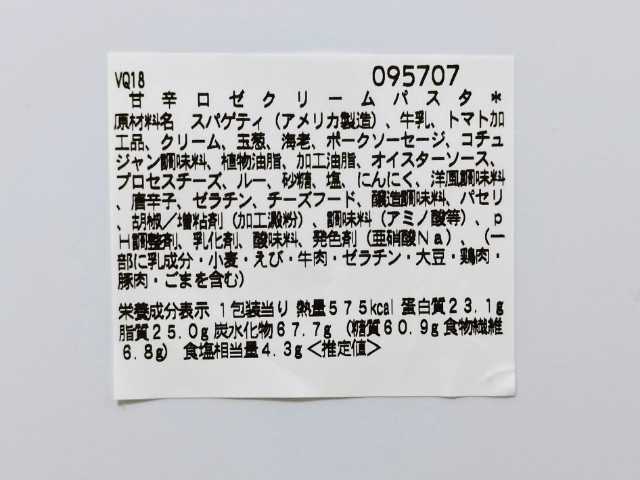 VQ18 095707
甘辛ロゼクリームパスタ*
原材料名 スパゲティ(アメリカ製造)、牛乳、トマト加
工品、クリーム、玉葱、海老、ポークソーセージ、コチュ
ジャン調味料、植物油脂、加工油脂、オイスターソース、
プロセスチーズ、ルー、砂糖、塩、にんにく、洋風調味料
、唐辛子、ゼラチン、チーズフード、醸造調味料、パセリ
、胡椒/増粘剤(加工澱粉)、調味料(アミノ酸等)、p
H調整剤、乳化剤、酸味料、発色剤(亜硝酸Na)、(一
部に乳成分・小麦・えび・牛肉・ゼラチン・大豆・鶏肉・
豚肉・ごまを含む)
栄養成分表示 1包装当り 熱量575kcal 蛋白質23.1g
脂質25.0g炭水化物67.7g (糖質60.9g食物繊維
6.8g) 食塩相当量4.3g<推定値>